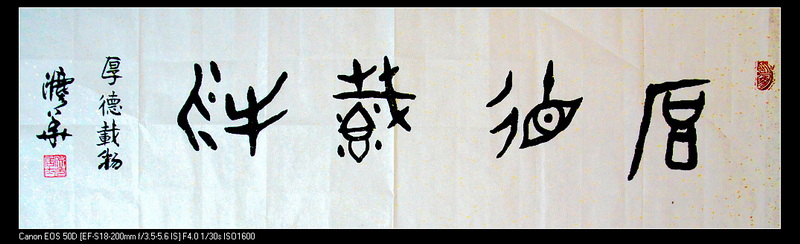 厚德載物
厚德載物
Canon EOS 50D [EF-S18-200mm f/3.5-5.6 IS] F4.0 1/30s ISO1600